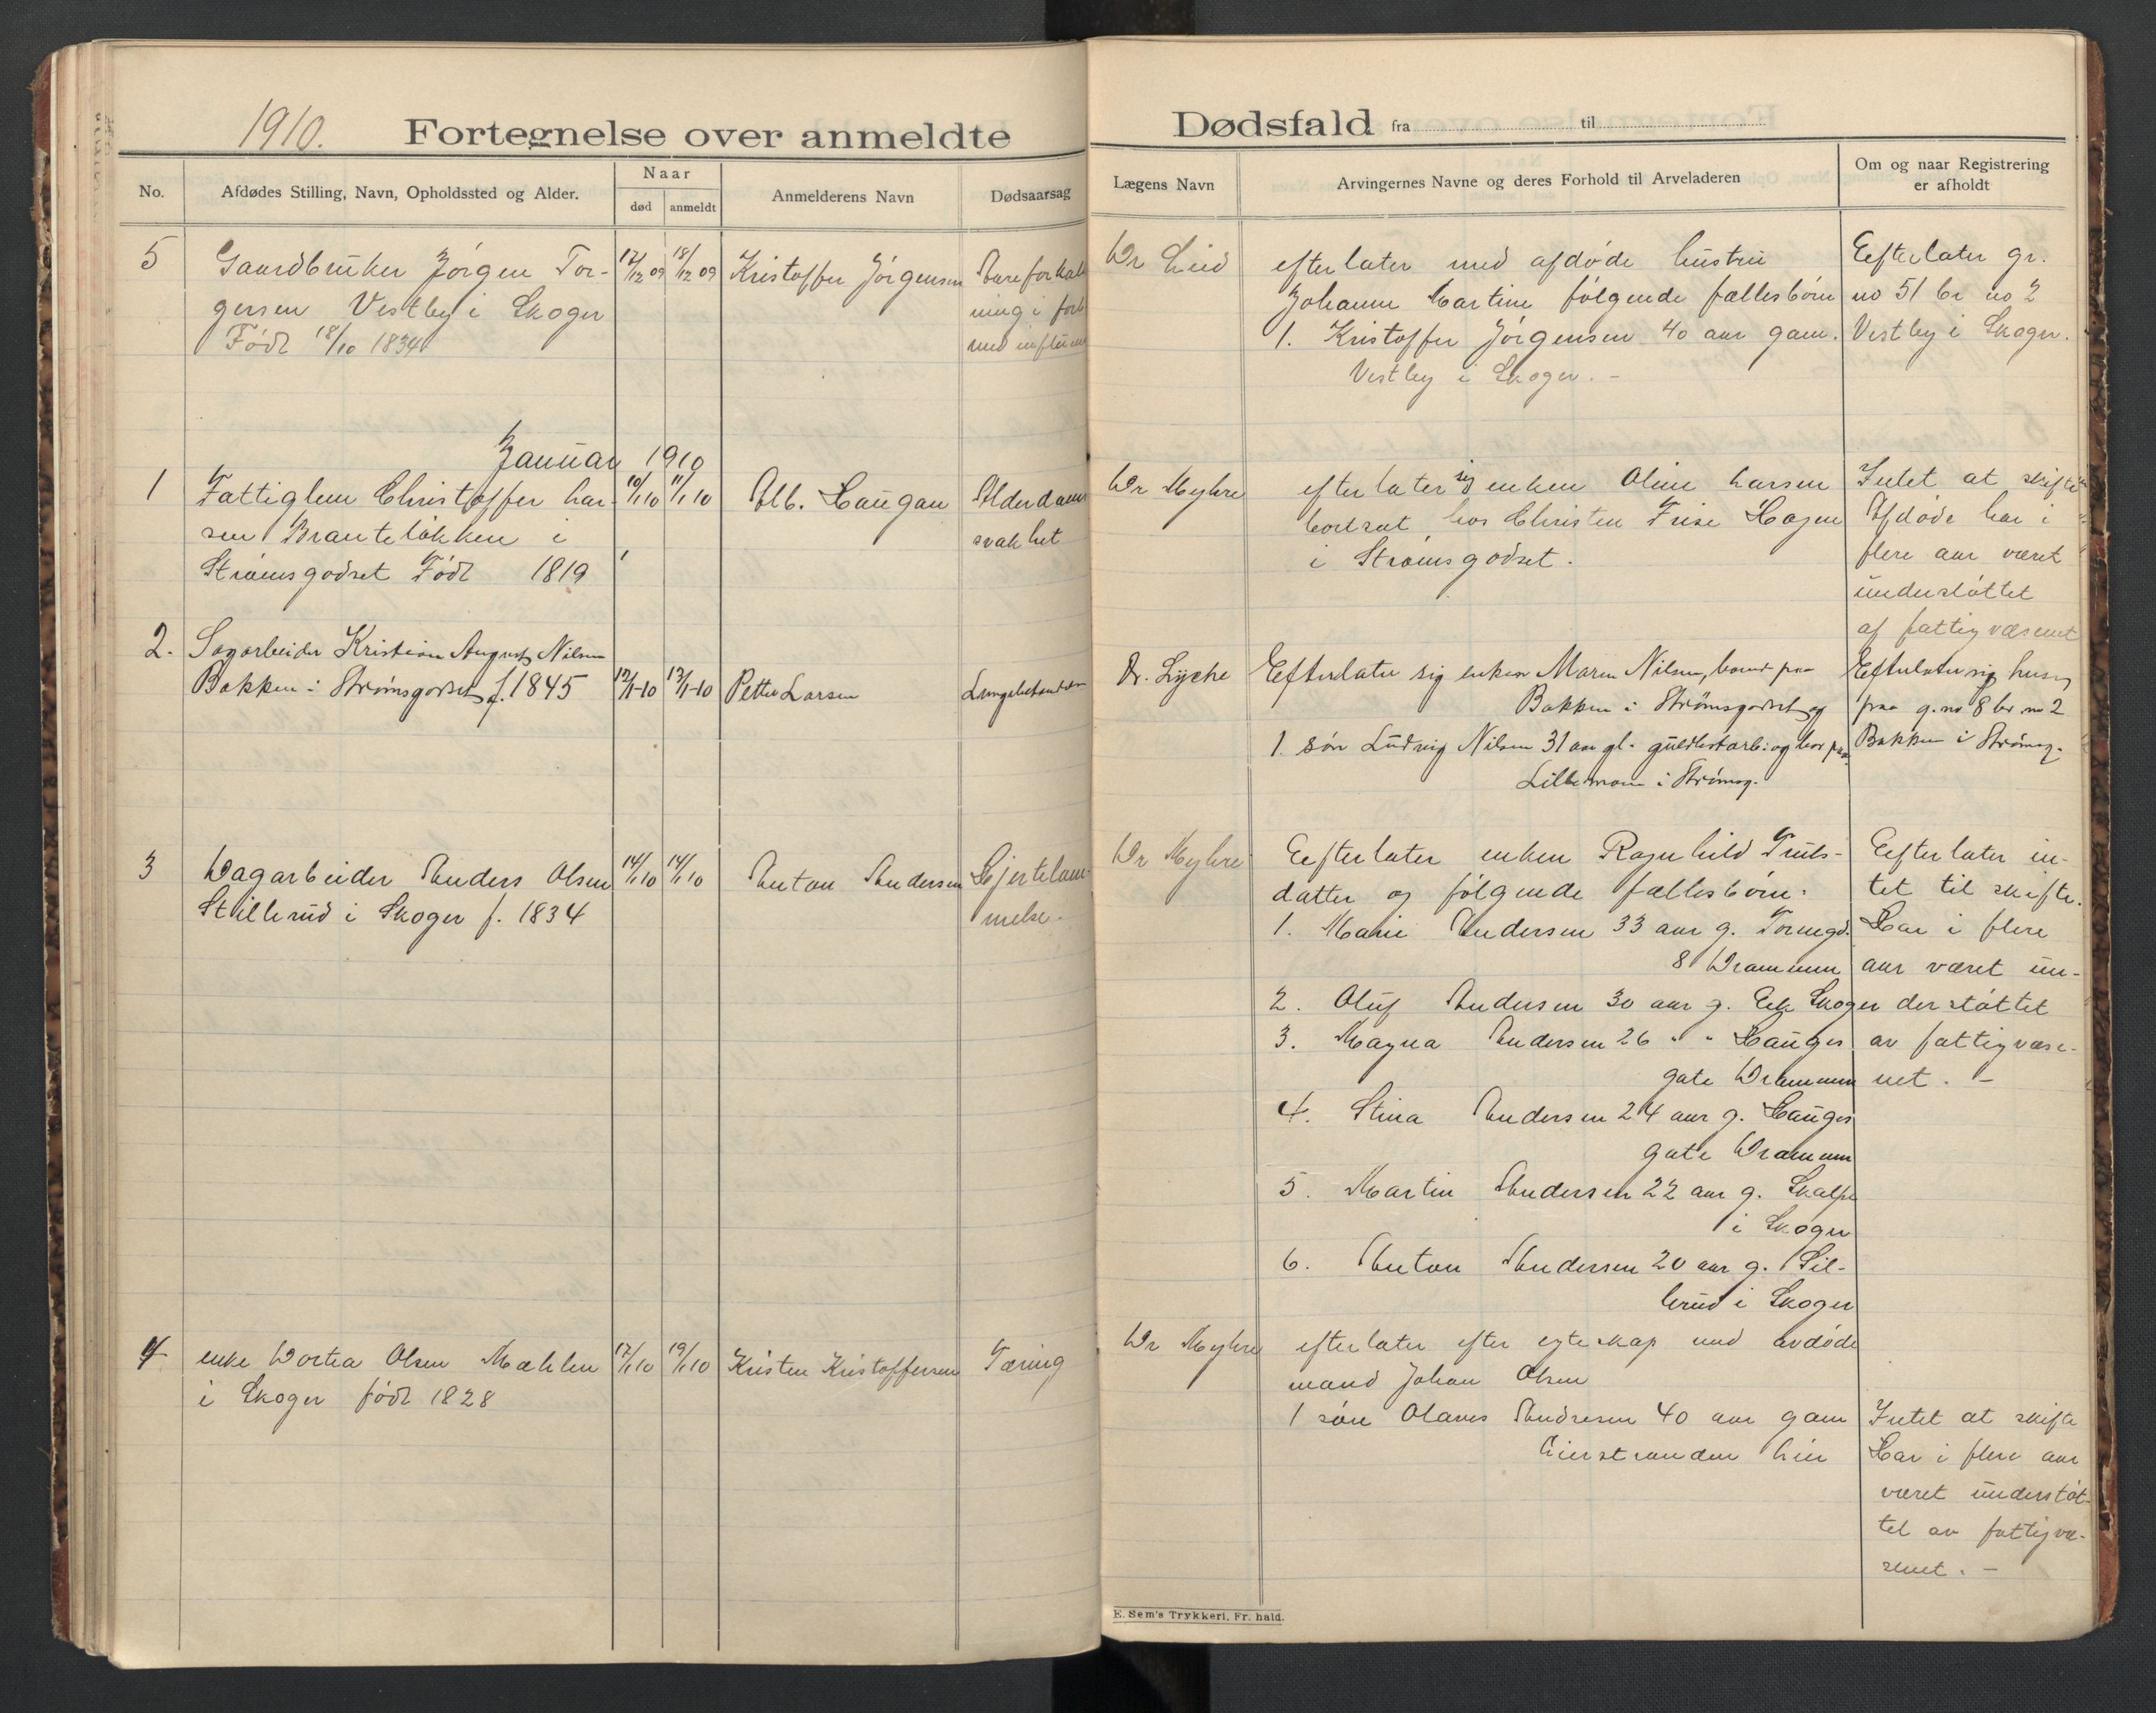 1910. Fortegnelse over anmeldte
Dødsfald fra til
No.
Afdødes Stilling, Navn, Opholdssted og Alder.
Naar
død anmeldt
Anmelderens Navn
Dødsaarsag
Lægens Navn
Arvingernes Navne og deres Forhold til Arveladeren
Om og naar Registrering
er afholdt
5 Gaardbruker Jørgen Tor-
gersen Vestby i Skoger
Født 18/10 1834
17/12 09 18/12 09 Kristoffer Jørgensen
ning i forb
med influen
Dr Lied
efterlater med afdøde hustru
Johanne Martine følgende fællesbørn
1. Kristoffer Jørgensen 40 aar gam.
Vestby i Skoger. -
Efterlater gr.
no 51 br no 2
Vestby i Skoger.
Januar 1910
1 Fattiglem Christoffer Lar-
sen Branteløkken i
Strømsgodset Født 1819
10/1 10 11/1 10 Alb. Haugan
Alderdoms
svakhet
Dr Myhre
efterlater sig enken Oline Larsen
bortsat hos Christen Frise Hagen
i Strømsgodset.
Intet at skifte
Afdøde har i
flere aar været
understøttet
af fattigvæsenet
2. Sagarbeider Kristian August Nilsen
Bakken i Strømsgodset f. 1845
12/1-10 13/1-10 Petter Larsen
Dr. Lyche
Efterlater sig enken Maren Nilsen, boende paa
Bakken i Strømsgodset og
1. søn Ludvig Nilsen 31 aar gl. guldlistarb: og bor paa
i Strømsg.
Efterlater sig hus
paa g. no 8 br no 2
Bakken i Strømsg.
3 Dagarbeider Anders Olsen
Stillerud i Skoger f. 1834
14/1 10 14/1 10 Anton Andersen
Hjertelam-
melse.
Dr Myhre
Efterlater enken Ragnhild Truls-
datter og følgende fællesbørn:
1. Marie Andersen 33 aar g.
8 Drammen
2. Oluf Andersen 30 aar g. Eek Skoger
3. Magna Andersen 26 " " Hauges
gate Drammen
4. Stina Andersen 24 aar g. Hauges
gate Drammen
5. Martin Andersen 22 aar g.
i Skoger
6. Anton Andersen 20 aar g. Stil-
lerud i Skoger
Efterlater in-
tet til skifte.
Har i flere
aar været un-
derstøttet
av fattigvæse-
net. -
4 enke Dortea Olsen Mæhlen
i Skoger født 1828
17/1 10 19/1 10 Kristen Kristoffersen
Tæring
Dr Myhre
efterlater efter egteskap med avdøde
mand Johan Olsen
1 søn Olaves Andresen 40 aar gam
Lierstranden Lier
Intet at skifte
Har i flere aar
været understøt-
tet av fattigvæ-
senet. -
E. Sem's Trykkeri, Fr. hald.